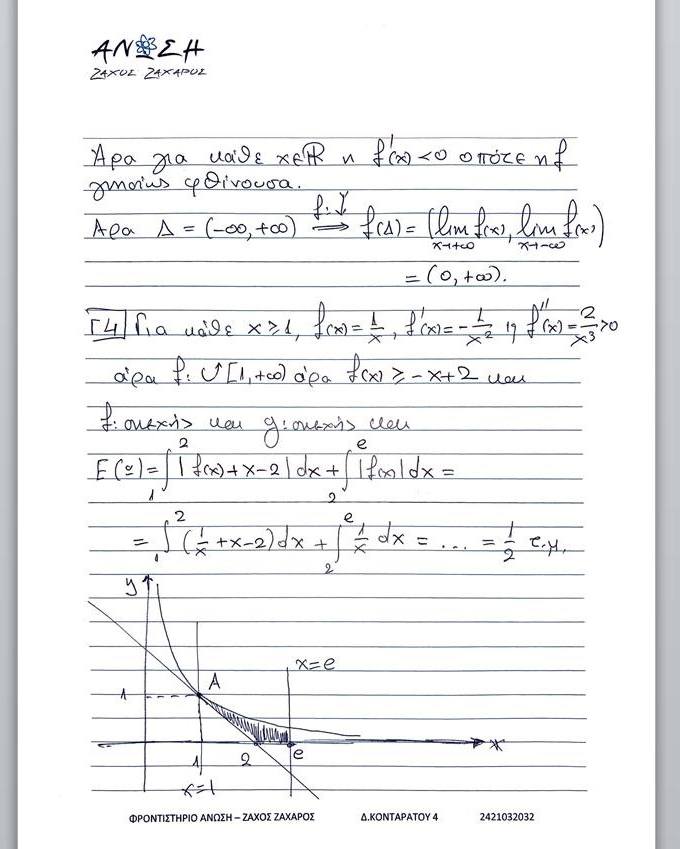 ΑΝΩΣΗ
ΖΑΧΟΣ ΖΑΧΑΡΟΣ
Άρα για κάθε x∈ℝ η f'(x)<0 οπότε η f
γνησίως φθίνουσα.
Άρα Δ = (-∞,+∞) f:↓ ⟹ f(Δ) = (lim x→+∞ f(x), lim x→-∞ f(x))
= (0,+∞).
Γ4 Για κάθε x≥1, f(x)=1/x, f'(x)=-1/x² ή f''(x)=2/x³>0
άρα f: ∪ [1,+∞) άρα f(x) ≥ -x+2 και
f: συνεχής και g: συνεχής και
E(Ω) = ∫₁² |f(x)+x-2| dx + ∫₂ᵉ |f(x)| dx =
= ∫₁² (1/x +x-2) dx + ∫₂ᵉ 1/x dx = ... = 1/2 τ.μ.
y
x=e
A
1
x
1 2 e
x=1
ΦΡΟΝΤΙΣΤΗΡΙΟ ΑΝΩΣΗ – ΖΑΧΟΣ ΖΑΧΑΡΟΣ Δ.ΚΟΝΤΑΡΑΤΟΥ 4 2421032032